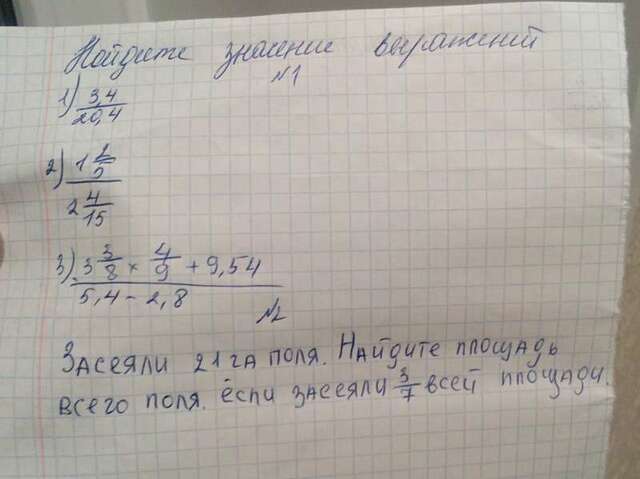 Найдите значение выражений
№1
1) 3,4/20,4
2) 1 2/5 / 2 4/15
3) 3 3/8 × 4/9 + 9,54 / 5,4 - 2,8
№2
Засеяли 21 га поля. Найдите площадь
всего поля. если засеяли 3/7 всей площади.